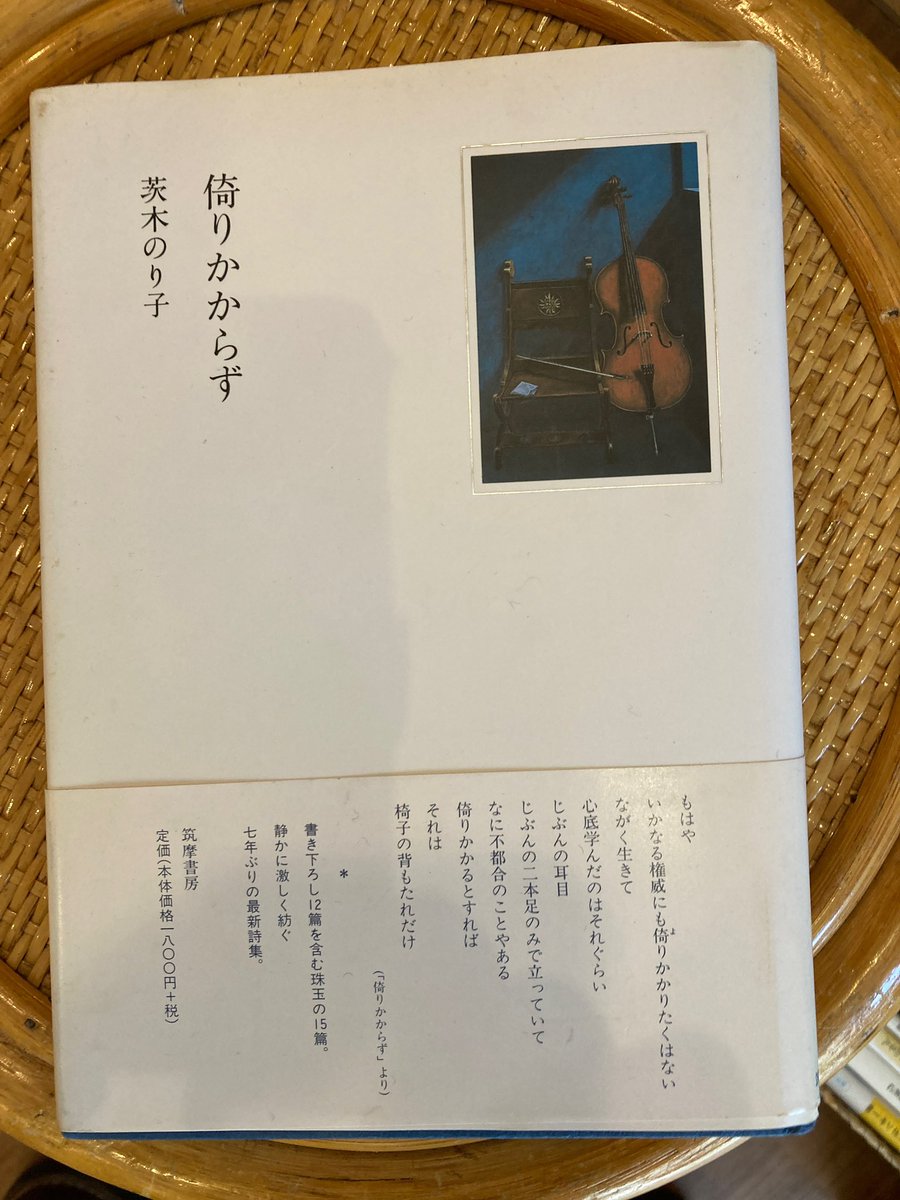 倚りかからず
茨木のり子
もはや
いかなる権威にも倚りかかりたくはない
よ
ながく生きて
心底学んだのはそれぐらい
じぶんの耳目
じぶんの二本足のみで立っていて
なに不都合のことやある
倚りかかるとすれば
それは
椅子の背もたれだけ
(「倚りかからず」より)
*
書き下ろし12篇を含む珠玉の15篇。
静かに激しく紡ぐ
七年ぶりの最新詩集。
筑摩書房
定価(本体価格一八〇〇円+税)